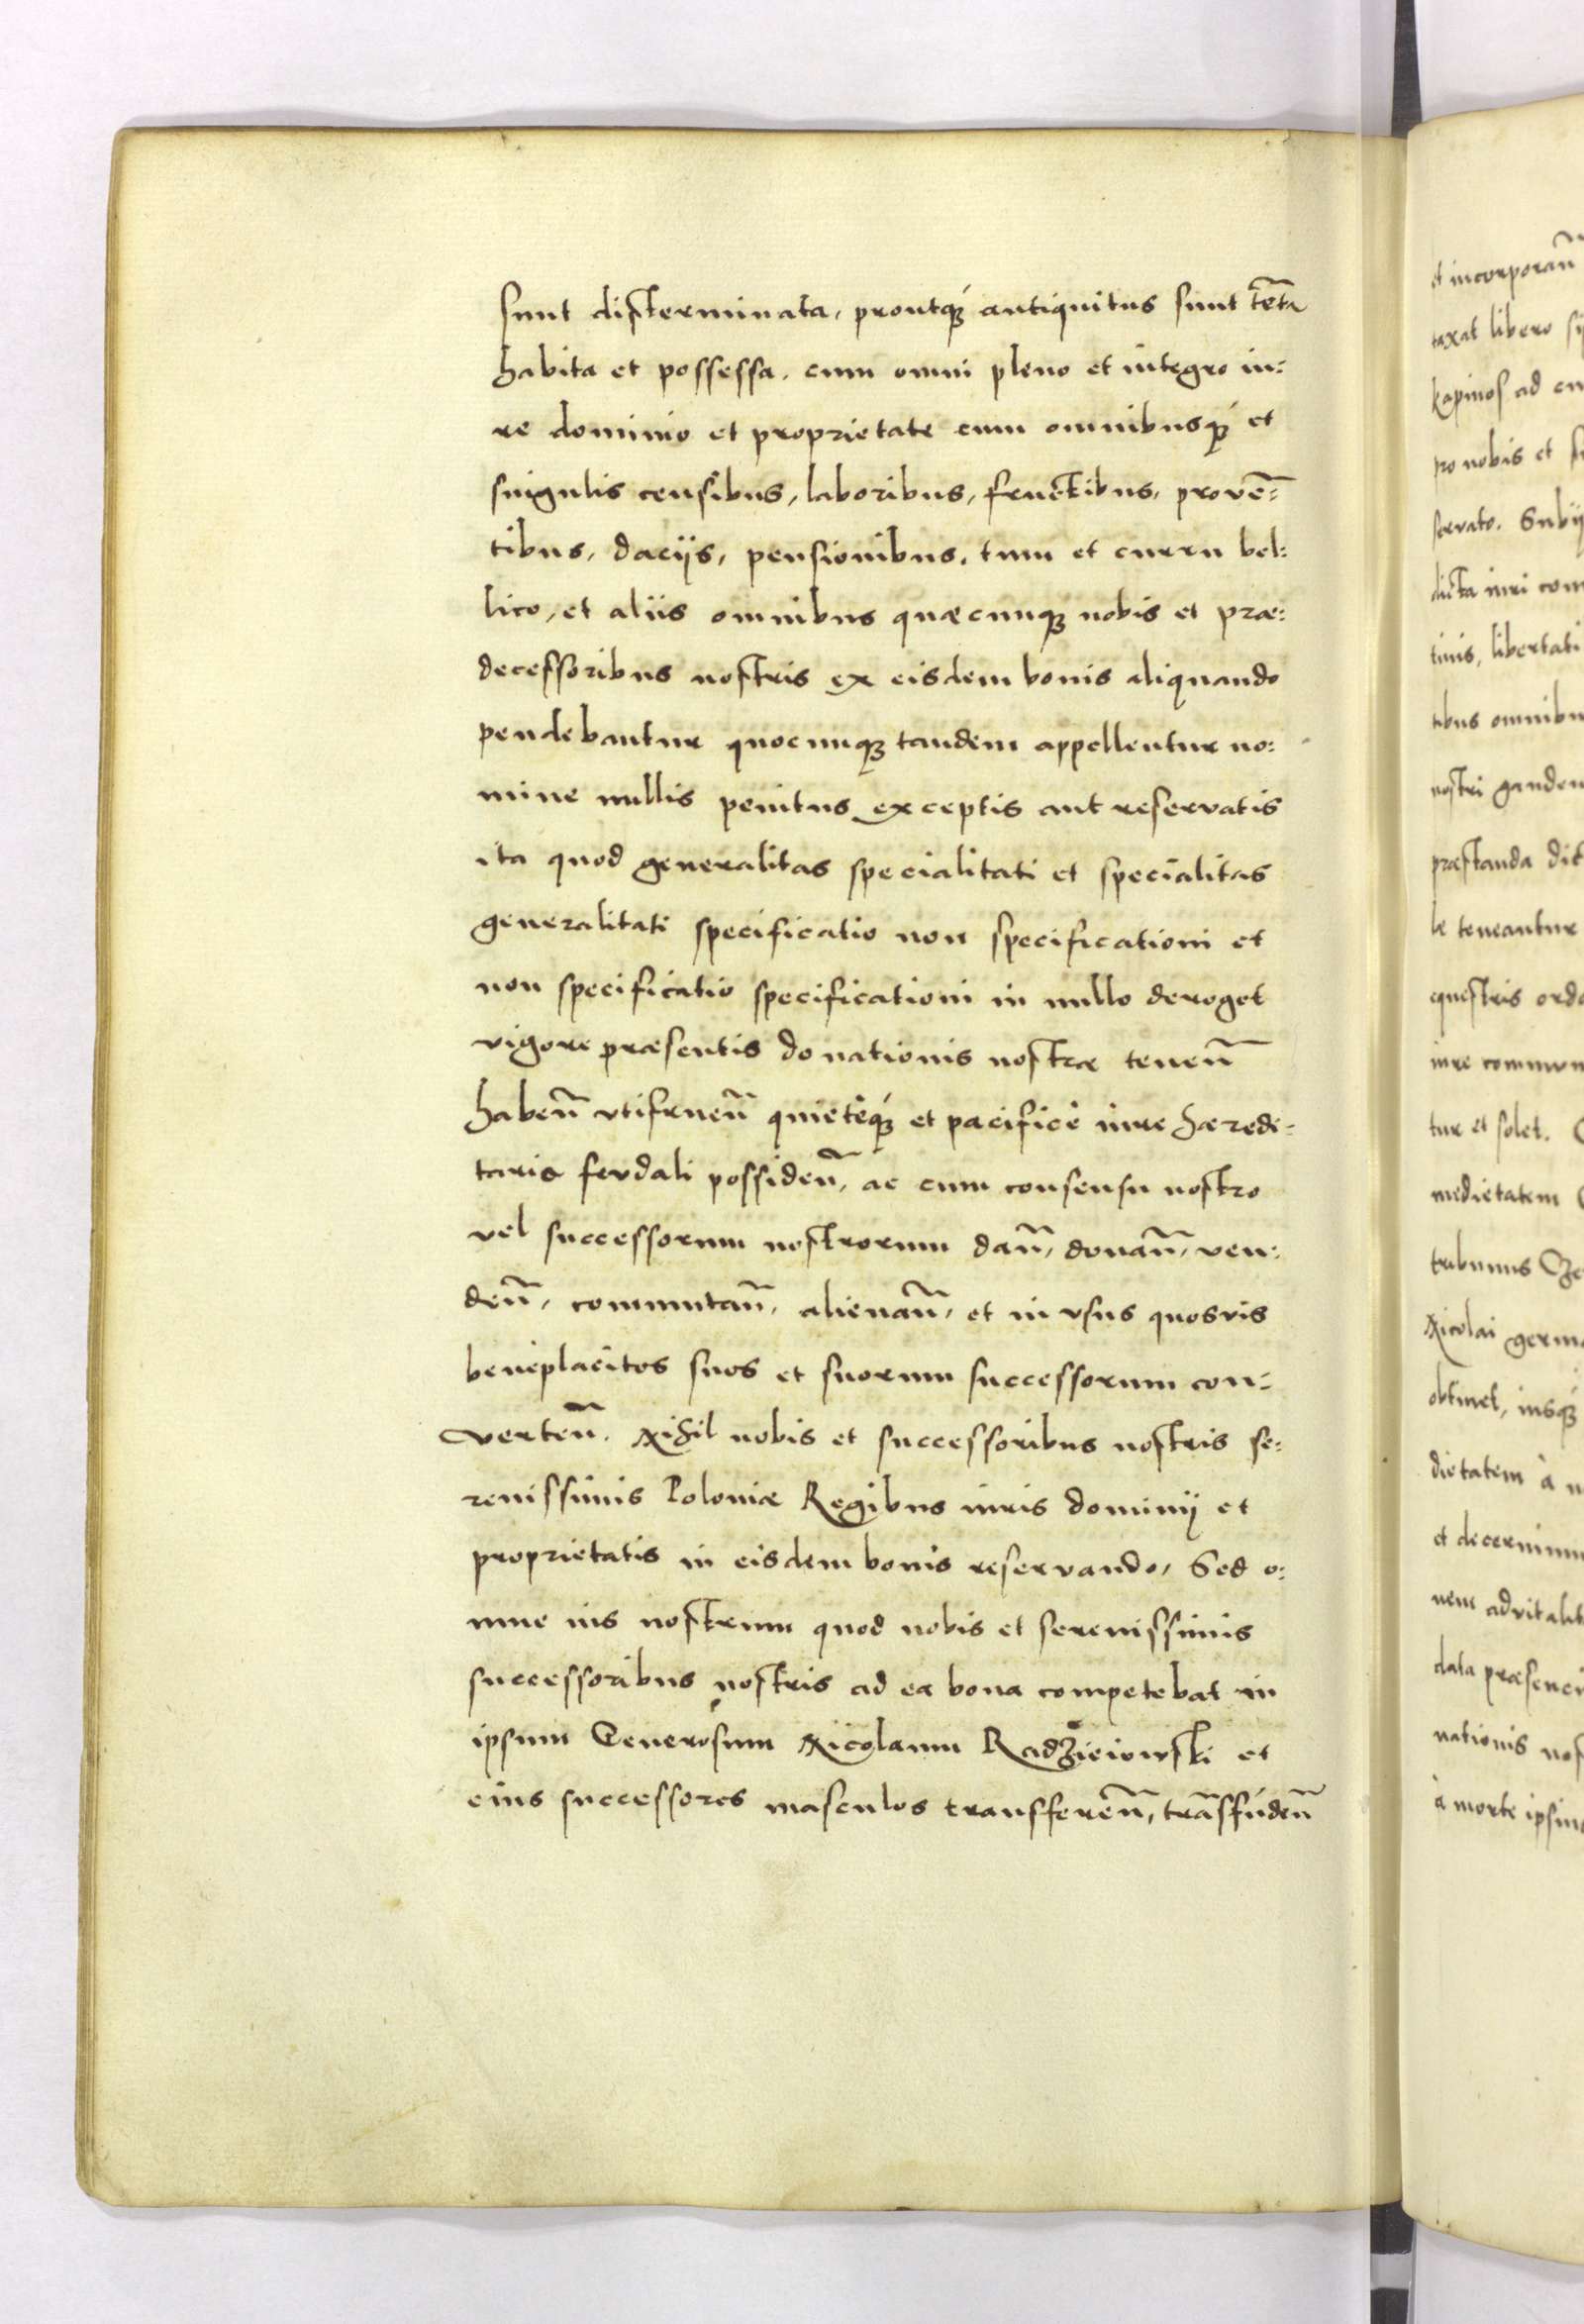 sunt disterminata, proutq́ue antiquitus sunt tēta
habita et possessa. cum omni pleno et integro iu:
re dominio et proprietate cum omnibusq́ue et
singulis censibus, laboribus, fructibus, provē=
tibus, daciis, pensionibus, tum et curru bel:
lico, et aliis omnibus quæcunque nobis et præ:
decessoribus nostris ex eisdem bonis aliquando
pendebantur quocunque tandem appellentur no:
mine nullis penitus exceptis aut reservatis
ita quod generalitas specialitati et specialitas
generalitati specificatio non specificationi et
non specificatio specificationi in nullo deroget
vigore præsentis donationis nostræ tenen̄
haben̄ utifruen̄ quietèq́ue et pacificè iure hæredi=
tario feudali possiden̄, ac cum consensu nostro
vel successorum nostrorum dan̄, donan̄, ven:
den̄, commutan̄, alienan̄, et in usus quosvis
beneplacitos suos et suorum successorum con=
verten̄. Nihil nobis et successoribus nostris se:
renissimis Poloniæ Regibus iuris dominij et
proprietatis in eisdem bonis reservando, Sed o:
mne ius nostrum quod nobis et serenissimis
successoribus nostris ad ea bona competebat in
ipsum Generosum Nicolaum Radzieiowski et
eius successores masculos transferen̄, trāsfūden̄
et incorporan̄
taxat libero
kapinos ad
pro nobis et
servato.
dicta iuri
tiius, libertati
tibus omnibu
nostri gauden
præstanda
le teneantur
equestris ord
iure commun
tur et solet.
medietatem
tribunus
Nicolai germa
obtinet, iusq́ue
dietatem à
et decernimu
nem advitalit
data præsenci
nationis nos
à morte ipsiu